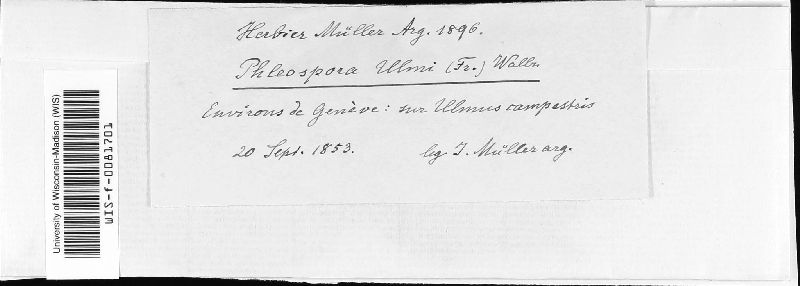 Herbier Müller Arg. 1896.
Phleospora Ulmi (Fr.) Wallr.
Environs de Genève : sur Ulmus campestris
20 Sept. 1853. leg J. Müller arg.
University of Wisconsin-Madison (WIS)
WIS-f-0081701